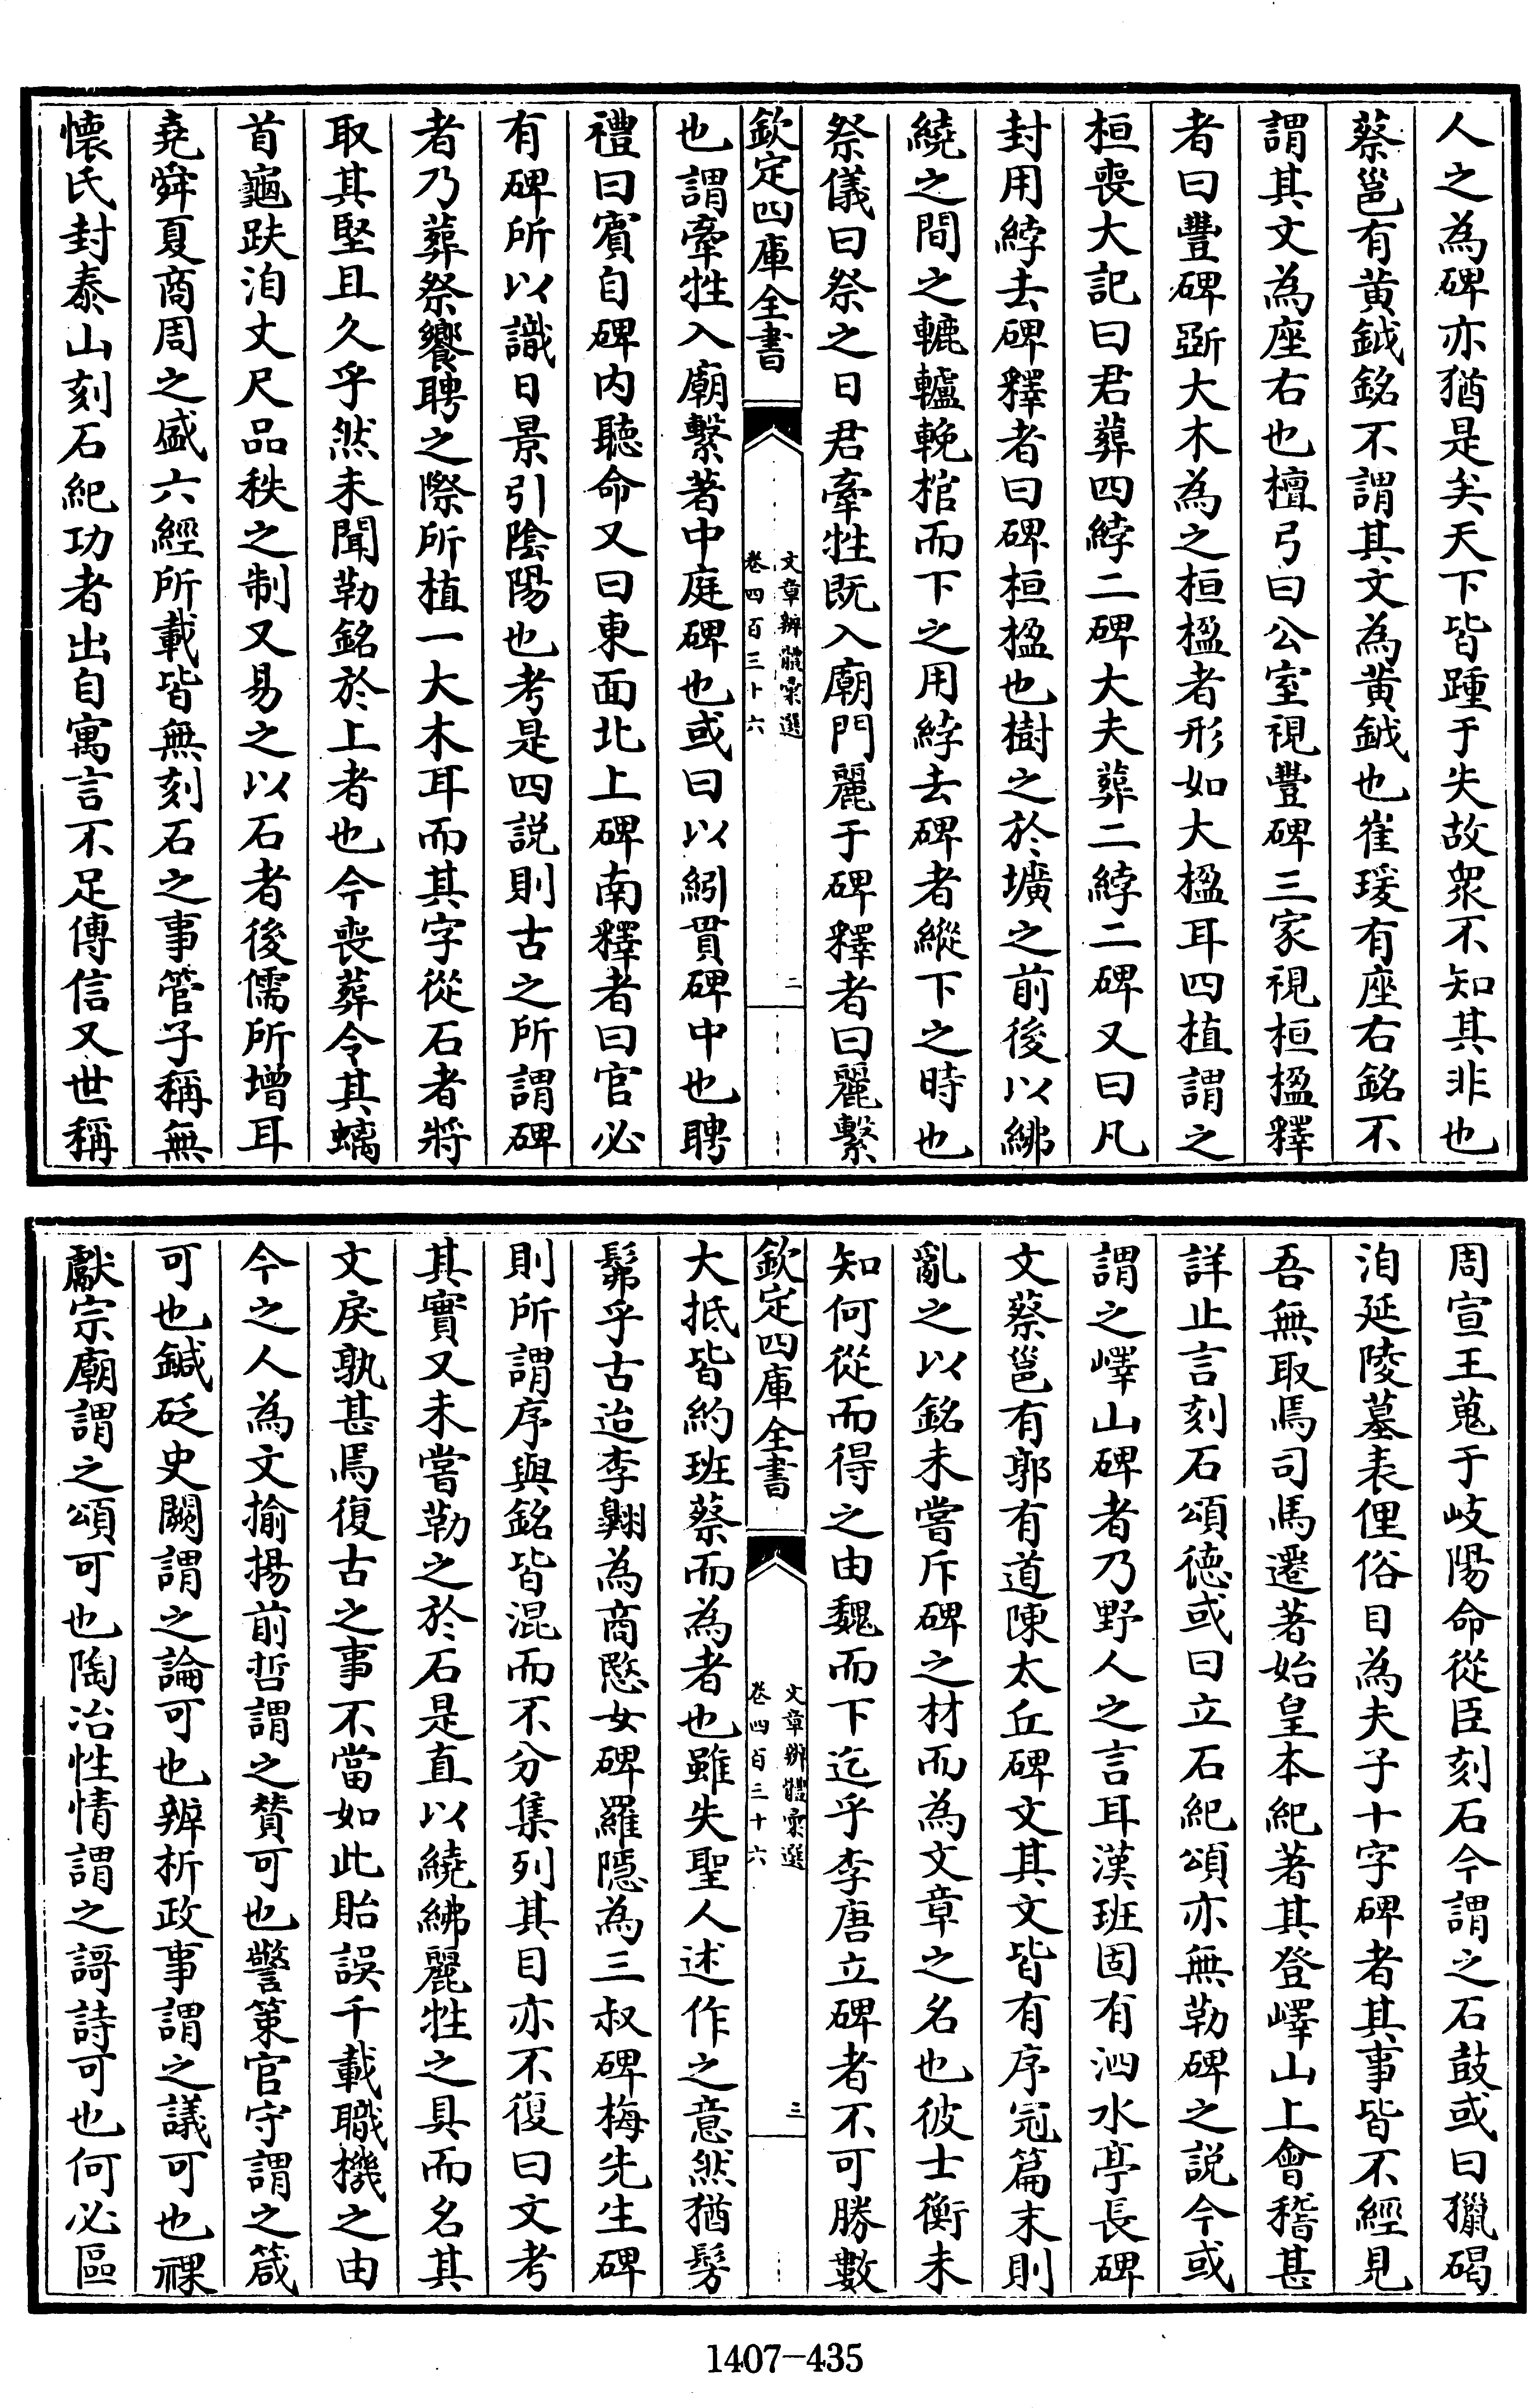 人之為碑亦猶是矣天下皆踵于失故衆不知其非也
蔡邕有黄鉞銘不謂其文為黄鉞也崔瑗有座右銘不
謂其文為座右也檀弓曰公室視豐碑三家視桓楹釋
者曰豐碑斲大木為之桓楹者形如大楹耳四植謂之
桓喪大記曰君葬四綍二碑大夫葬二綍二碑又曰凡
封用綍去碑釋者曰碑桓楹也樹之於壙之前後以紼
繞之間之轆轤輓棺而下之用綍去碑者縱下之時也
祭儀曰祭之日君牽牲既入廟門麗于碑釋者曰麗繫
欽定四庫全書
文章辨體彙選
卷四百三十六
二
也謂牽牲入廟繫著中庭碑也或曰以紖貫碑中也聘
禮曰賓自碑内聽命又曰東面北上碑南釋者曰官必
有碑所以識日景引陰陽也考是四説則古之所謂碑
者乃葬祭饗聘之際所植一大木耳而其字從石者將
取其堅且久乎然未聞勒銘於上者也今喪葬令其螭
首龜趺洎丈尺品秩之制又易之以石者後儒所增耳
堯舜夏商周之盛六經所載皆無刻石之事管子稱無
懐氏封泰山刻石紀功者出自寓言不足傳信又世稱
周宣王蒐于岐陽命從臣刻石今謂之石鼓或曰獵碣
洎延陵墓表俚俗目為夫子十字碑者其事皆不經見
吾無取焉司馬遷著始皇本紀著其登嶧山上會稽甚
詳止言刻石頌徳或曰立石紀頌亦無勒碑之説今或
謂之嶧山碑者乃野人之言耳漢班固有泗水亭長碑
文蔡邕有郭有道陳太丘碑文其文皆有序冠篇末則
亂之以銘未嘗斥碑之材而為文章之名也彼士衡未
知何從而得之由魏而下迄乎李唐立碑者不可勝數
欽定四庫全書
文章辨體彙選
卷四百三十六
三
大抵皆約班蔡而為者也雖失聖人述作之意然猶髣
髴乎古迨李翺為商愍女碑羅隱為三叔碑梅先生碑
則所謂序與銘皆混而不分集列其目亦不復曰文考
其實又未嘗勒之於石是直以繞紼麗牲之具而名其
文戾孰甚焉復古之事不當如此貽誤千載職機之由
今之人為文揄揚前哲謂之賛可也警策官守謂之箴
可也鍼砭史闕謂之論可也辨析政事謂之議可也祼
獻宗廟謂之頌可也陶冶性情謂之謌詩可也何必區
1407-435